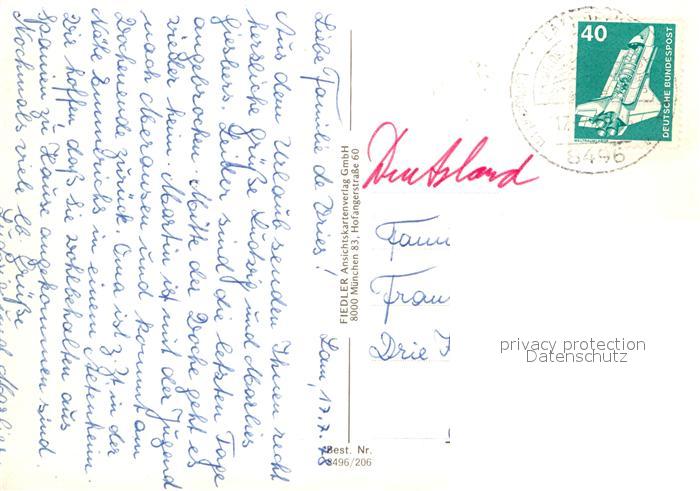 Lam, 17.7.78
Liebe Familie de Vries!
Aus dem Urlaub senden Ihnen recht
herzliche Grüße Ludwig und Marlies
Giesbers. Leider sind die letzten Tage
angebrochen. Mitte der Woche geht es
wieder heim. Martin ist mit der Jugend
nach und kommt am
Wochenende zurück. Oma ist z. Zt. in der
Nähe in einem Altenheim.
Wir hoffen, daß Sie wohlbehalten aus
Spanien zu Haus angekommen sind.
Nochmals viele lb. Grüße
Ludwig und Marlies
FIEDLER Ansichtskartenverlag GmbH
8000 München 83, Hofangerstraße 60
Best. Nr.
8496/206
40
DEUTSCHE BUNDESPOST
8496
Deutsland
Fam
Fran
Drie
privacy protection
Datenschutz